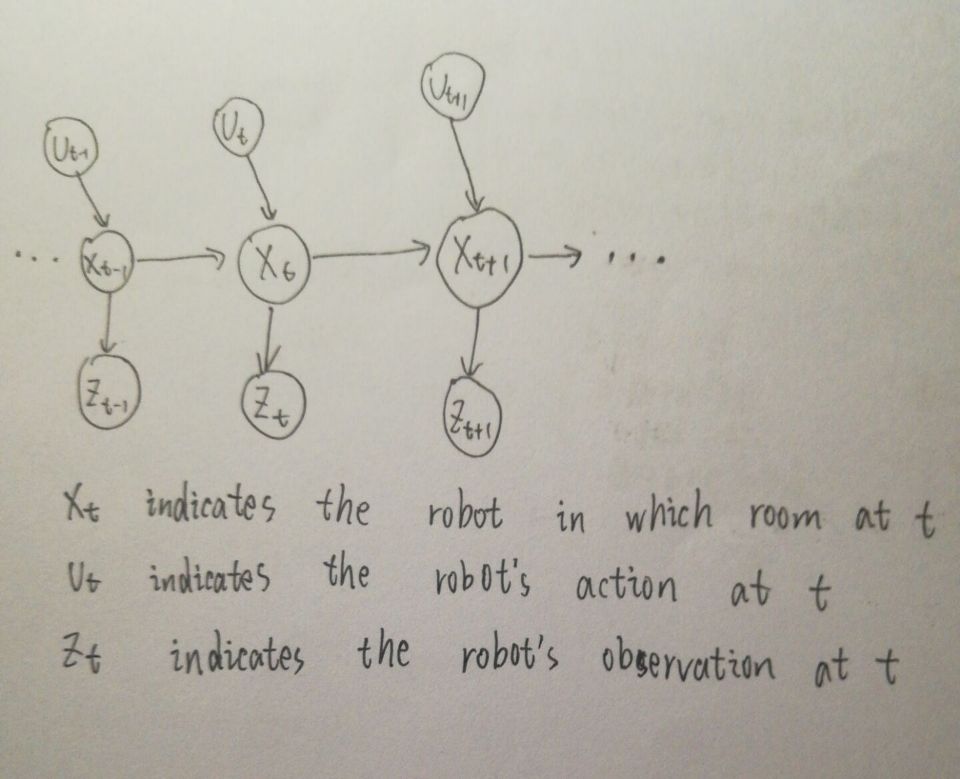 U_{t-1} U_t U_{t+1}
... X_{t-1} X_t X_{t+1} ...
Z_{t-1} Z_t Z_{t+1}
X_t indicates the robot in which room at t
U_t indicates the robot's action at t
Z_t indicates the robot's observation at t